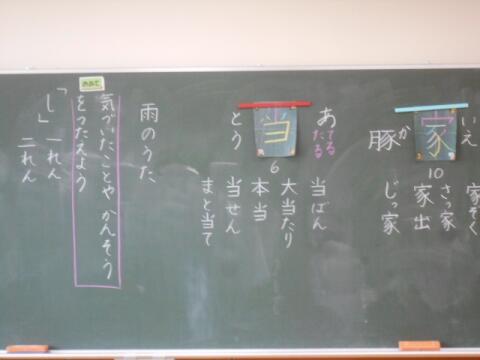 いえ
家
か
豚
10
家ぞく
さっ家
家出
じっ家
あてる
たる
当
とう
6
当ばん
大当たり
本当
当せん
まと当て
雨のうた
めあて
気づいたことや かんそう
をつたえよう
「し」 一れん
二れん